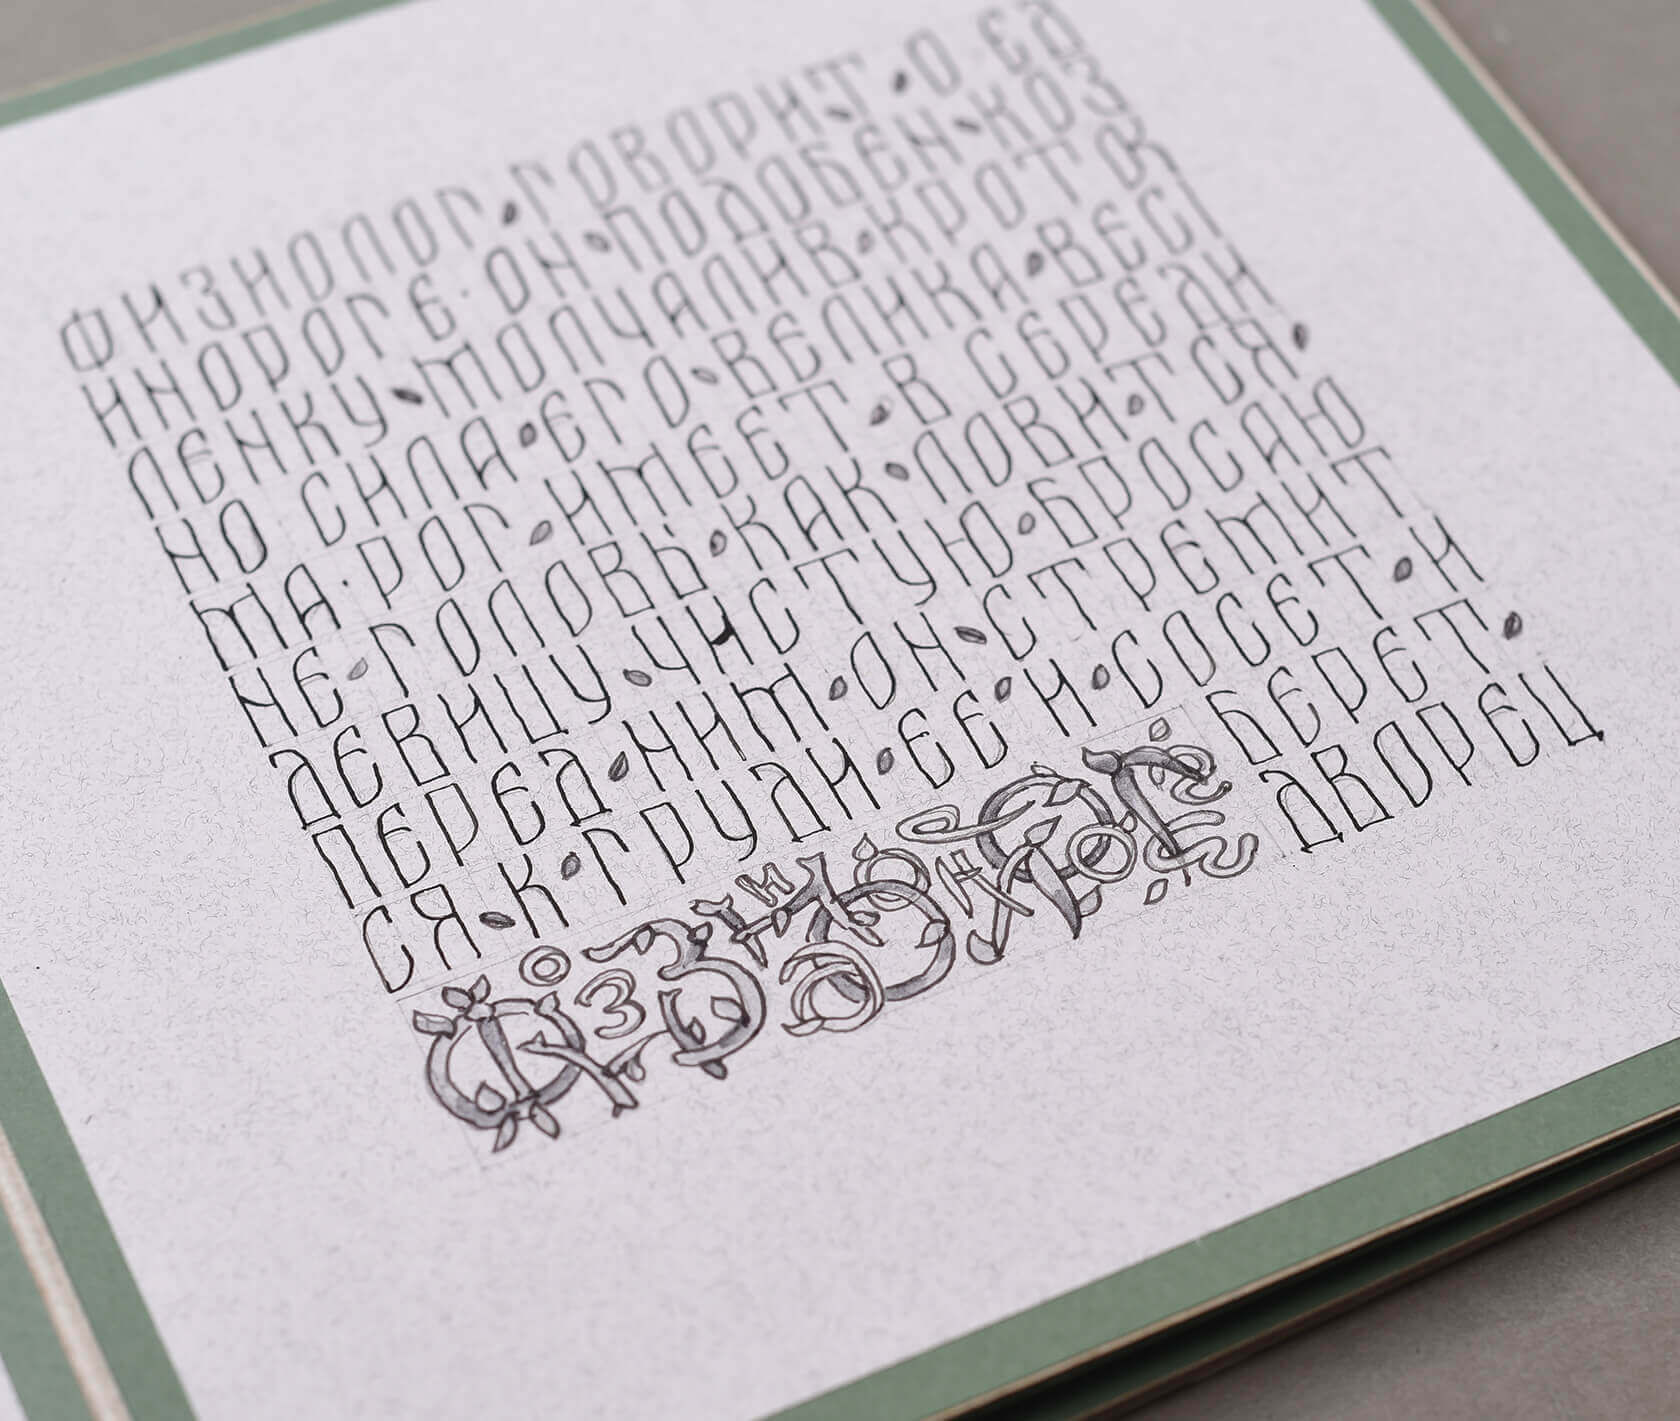 ФИЗИОЛОГ • ГОВОРИТ • О ЕД
ИНОРОГЕ · ОН • ПОДОБЕН • КОЗ
ЛЕНКУ • МОЛЧАЛИВ • КРОТОК
НО СИЛА • ЕГО • ВЕЛИКА • ВЕСЬ
МА · РОГ • ИМЕЕТ • В СЕРЕДИ
НЕ • ГОЛОВЫ • КАК • ЛОВИ•ТСЯ •
ДЕВИЦУ • ЧИСТУЮ • БРОСАЮ
ПЕРЕД • НИМ • ОН • СТРЕМИТ
СЯ • К • ГРУДИ • ЕЕ • И • СОСЕТ • И
БЕРЕТ •
ДВОРЕЦ